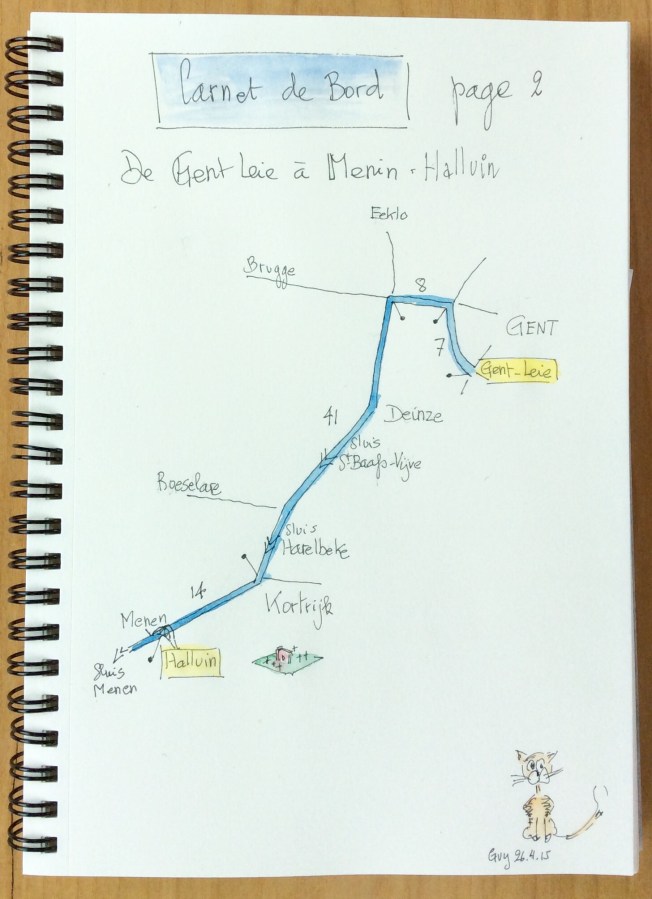 Carnet de Bord
page 2
De Gent Leie à Menin - Halluin
Eeklo
Brugge
8
GENT
7
Gent-Leie
41
Deinze
Sluis
St Baafs-Vijve
Roeselare
Sluis
Harelbeke
14
Kortrijk
Menen
Halluin
Sluis
Menen
Guy 26.4.15